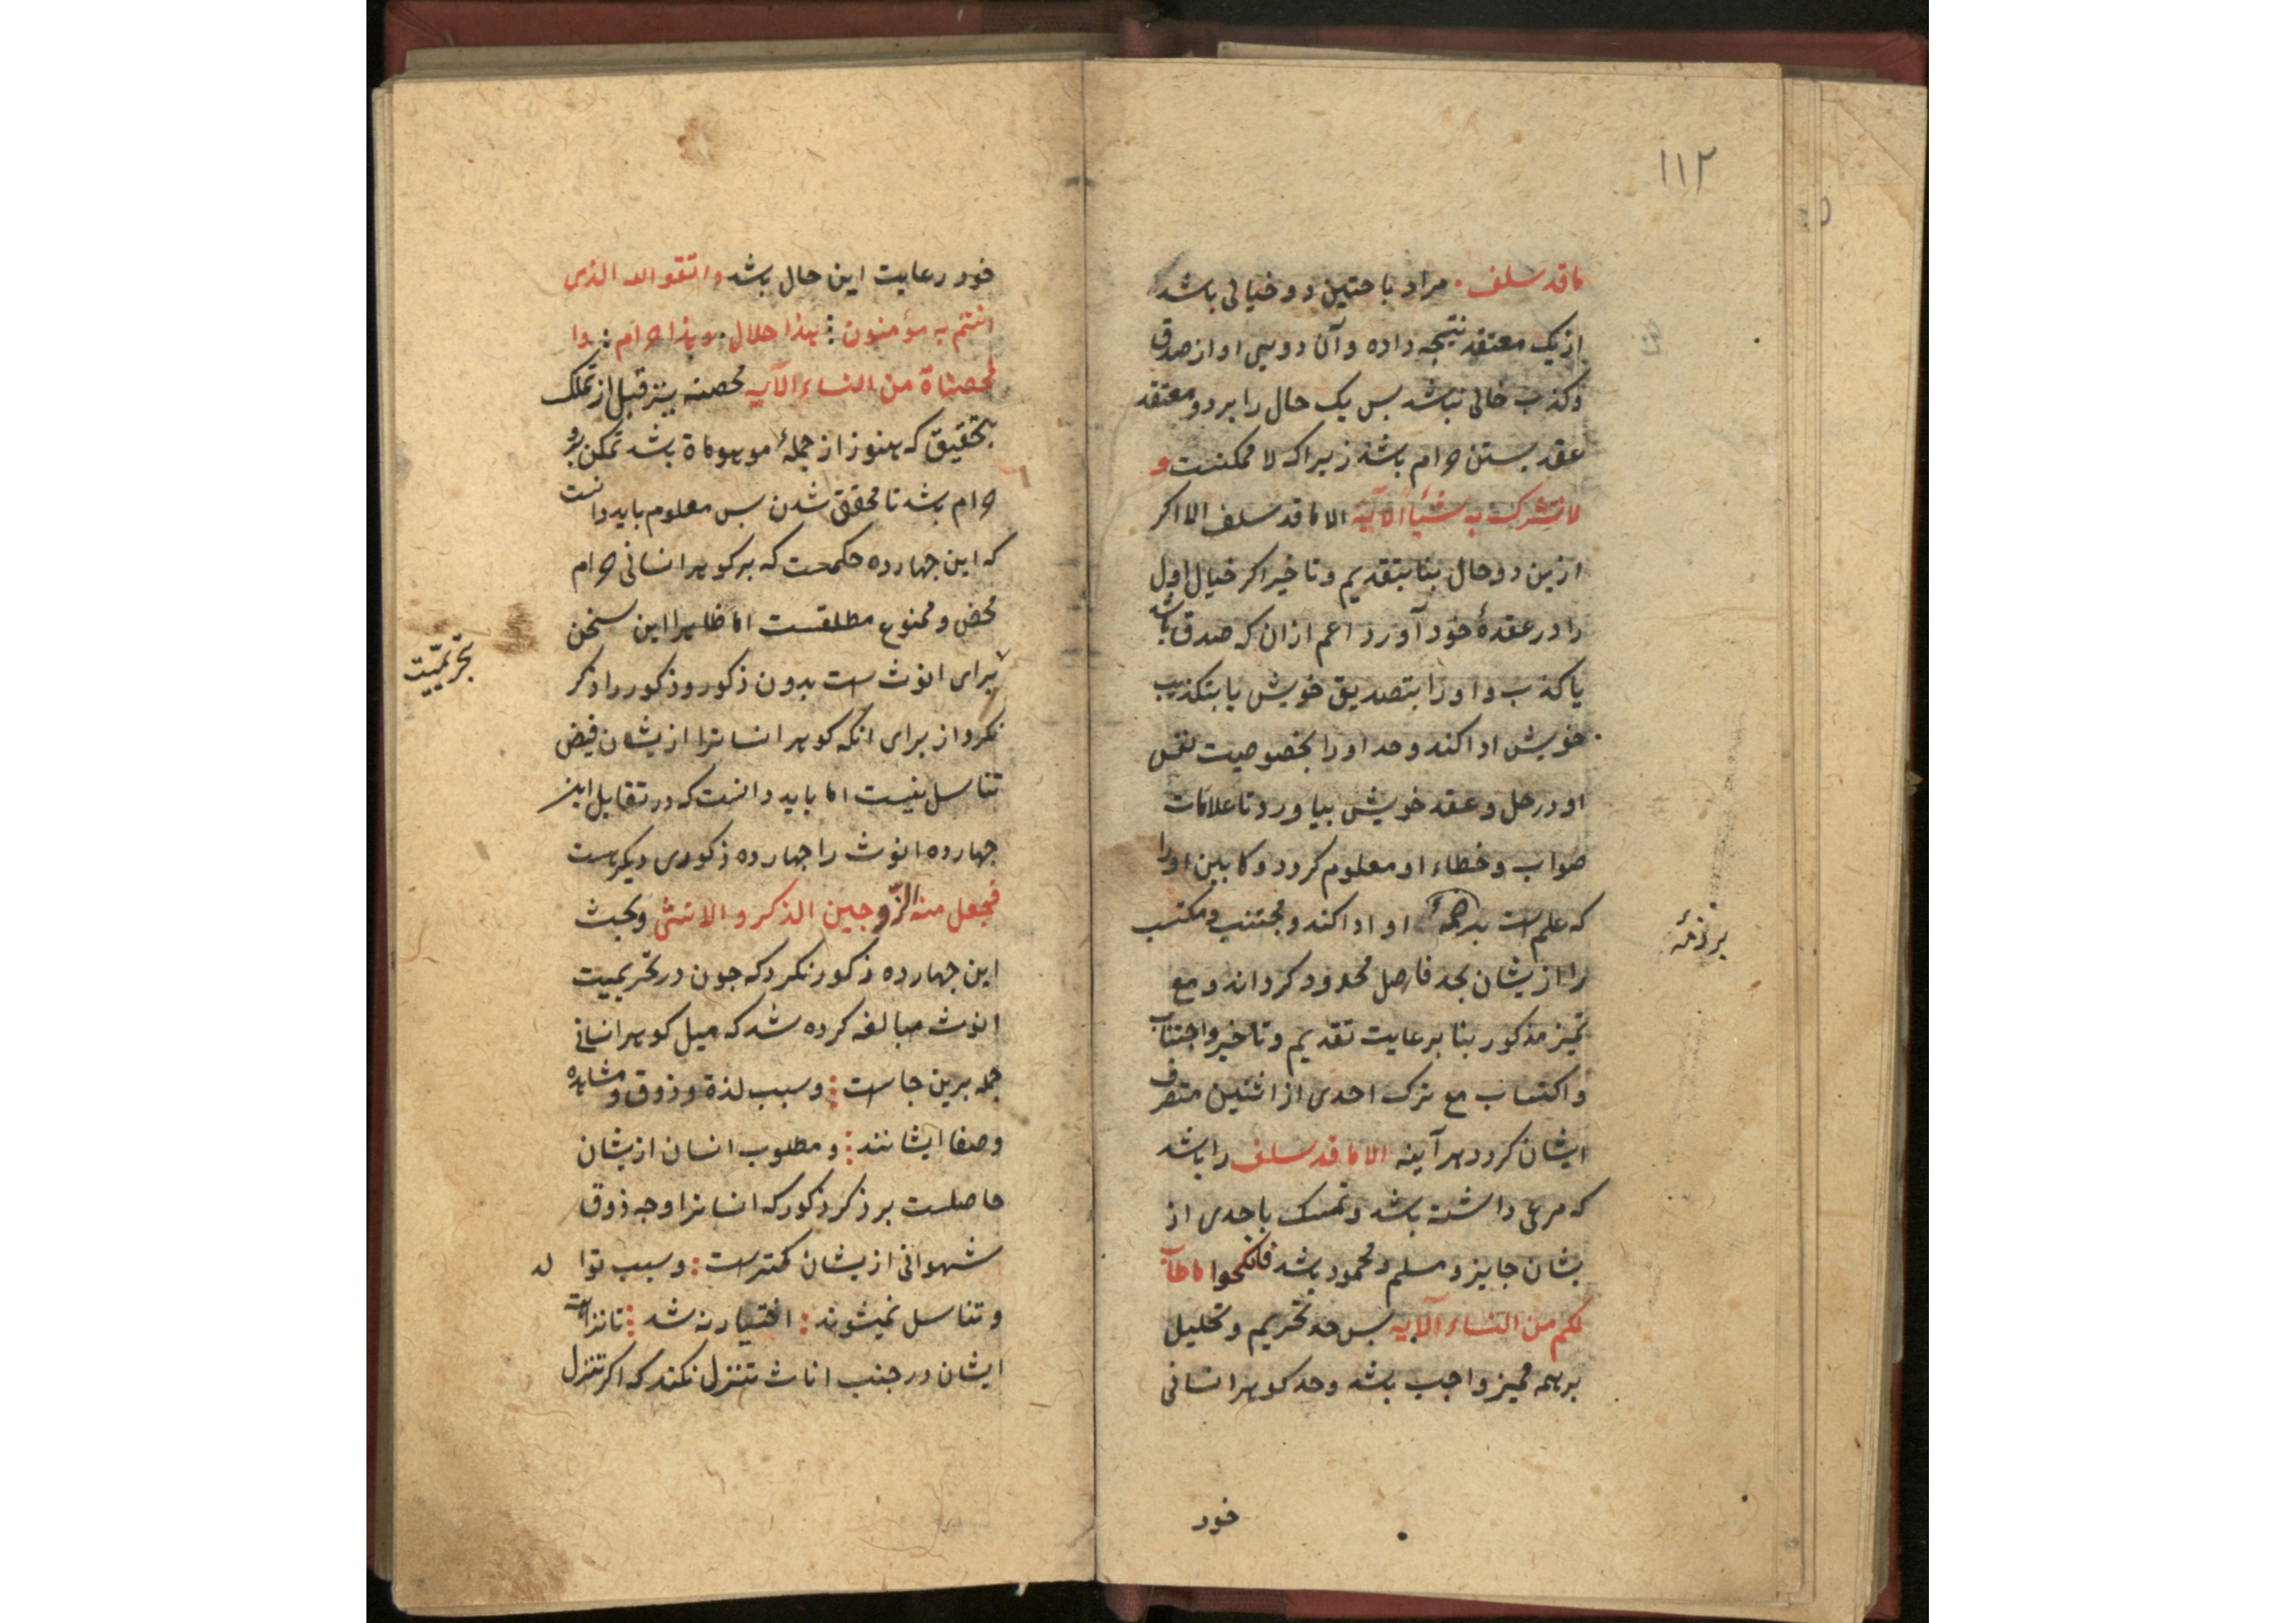 ۱۱۲
ما قد سلف. مراد باختین دو خیالی باشد که
از یک معتقد نتیجه داده و آن دویی او از صدق
و کذب خالی نباشد پس یک حال را بر دو معتقد
عقد بستن حرام باشد زیرا که لا ممکنست و
لا تشرک به شیئاً الآیه الا ما قد سلف الا اکر
ازین دو حال بنا بتقدیم و تاخیر اکر خیال اول
را در عقدهٔ خود آورد اعم از ان که صدق باشد
یا کذب و او را بتصدیق خویش یا بتکذیب
خویش ادا کند و حد او را بخصوصیت نفس
او در حل و عقد خویش بیاورد تا علامات
صواب و خطاء او معلوم کردد و کابین او را
که علم است بر ذمهٔ او ادا کند و مجتنب و مکتسب
را ازیشان بحد فاصل محدود کرداند و مع
تمیز مذکور بنا بر رعایت تقدیم و تاخیر و اجتناب
و اکتساب مع ترک احدی از اثنین متصرف
ایشان کردد هر آینه الا ما قد سلف را باشد
که مرعی داشته باشد و تمسک باحدی از
یشان جایز و مسلم و محمود باشد فانکحوا ما طاب
لکم من النساء الآیه پس حد تحریم و تحلیل
بر همه ممیز واجب باشد و حد کوهر انسانی
بر ذمهٔ
خود
خود رعایت این حال باشد و اتقوا الله الذی
انتم به مؤمنون: هذا حلال. و هذا حرام: وا
لمحصناة من النساء الآیه محصنه نیز قبل از تملک
بتحقیق که هنوز از جملهٔ موهوماة باشد تمکن برو
حرام باشد تا محقق شدن پس معلوم باید دانست
که این جهارده حکمست که بر کوهر انسانی حرام
محض و ممنوع مطلقست اما ظاهرا این سخن
برای انوث است بدون ذکور و ذکور را ذکر
نکرد از برای انکه کوهر انسانرا ازیشان فیض
تناسل نیست اما باید دانست که در تقابل این
جهارده انوث را جهارده ذکوری دیکرست
فجعل منه الزّوجین الذکر و الانثی و بحث
این جهارده ذکور نکرد که جون در تحریمیت
انوث مبالغه کرده شد که میل کوهر انسانی
جمله برین جا است: و سبب لذة و ذوق و مشاهده
و صفا ایشانند: و مطلوب انسان ازیشان
حاصلست بر ذکر ذکور که انسانرا وجه ذوق
شهوانی ازیشان کمترست: و سبب توالد
و تناسل نمیشوند: اختیار نه شد: تا نزاهت
ایشان در جنب اناث تنزل نکند که اکر تنزل
تحریمیّت